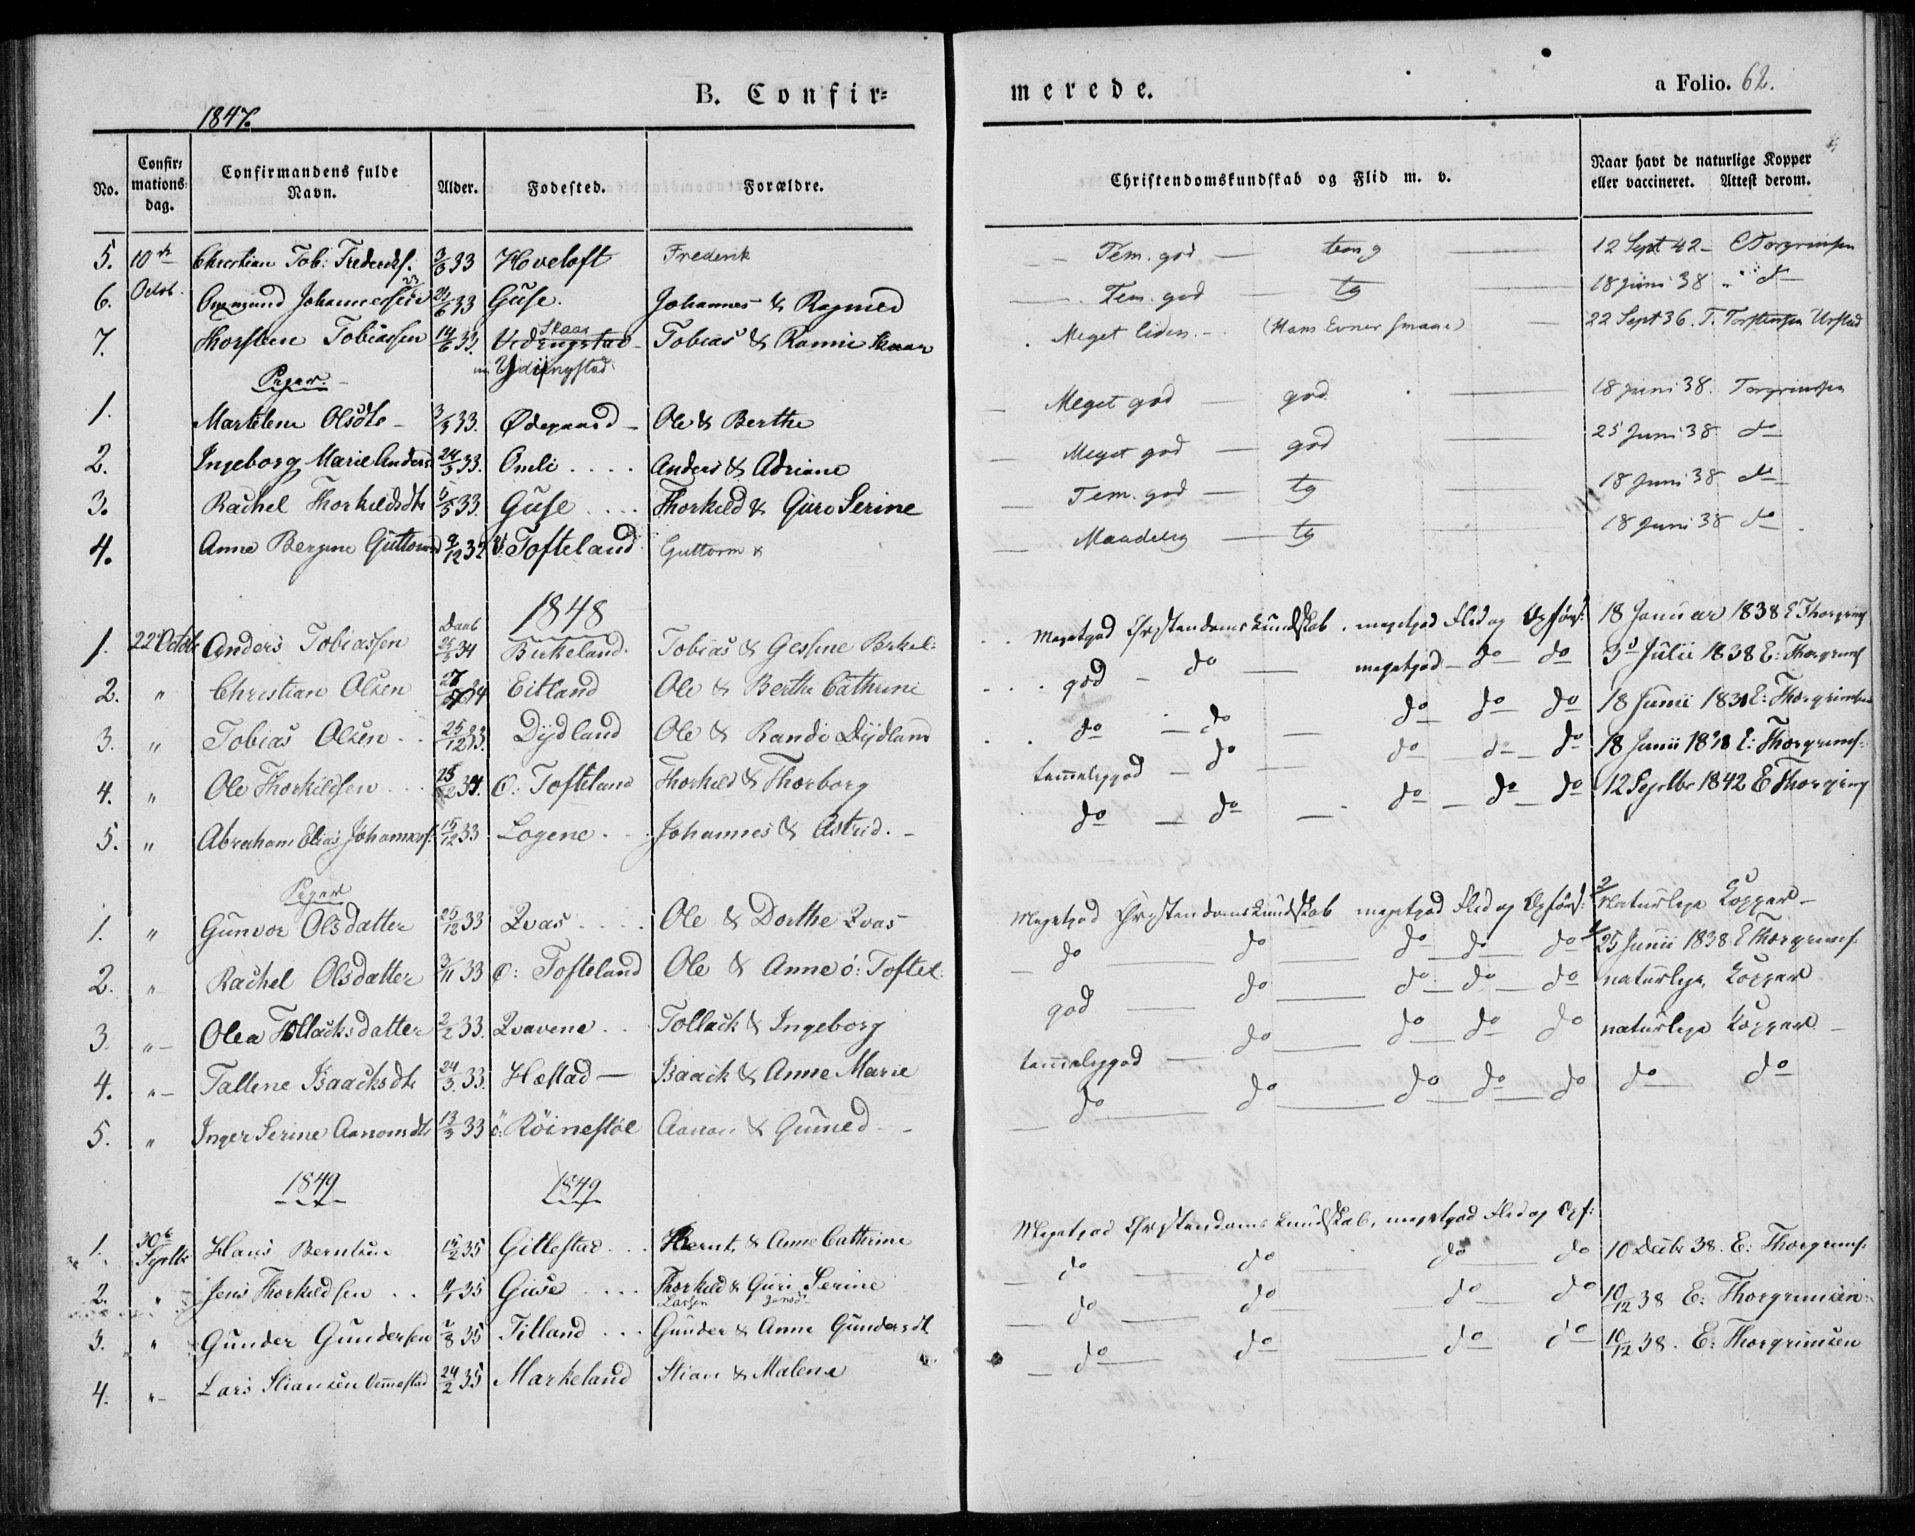 B. Confir=
merede.
a Folio. 62.
1847.
No. Confirmationsdag. Confirmandens fulde Navn. Alder. Fødested. Forældre. Christendomskundskab og Flid m. v. Naar havt de naturlige Kopper eller vaccineret. Attest derom.
5. 10de Octob. Christian Tob: Frederiks. 33 Hoveloft Frederik Tem. god 12 Sept 42
6. Johannessen 33 Guse. Johannes & Ragnild Tem. god tg 18 juni 38 do
7. Thorsteen Tobiassen 14/6 33. Skaar Tobias & Rannie Skaar Meget liden. (Hans Evner smaae) 22 Sept 36. T. Torstensen
Piger.
1. Martelene Olsdtr 3/3 33. Ødegaard Ole & Berthe Meget god god 18 juni 38. Torgrimsen
2. Ingeborg Marie Anders 24/3 33. Omli Anders & Adriane Meget god god 25 Juni 38 do
3. Rachel Thorkildsdtr 5/5 33. Guse Thorkild & Guro Serine Tem. god tg 18 Juni 38 do
4. Anne Bergine Guttorms 9/12 32 V: Tofteland Guttorm & Maadelig tg 18 Juni 38 do
1848
1. 22 Octobr Anders Tobiassen Daab 25/3 34 Birkeland. Tobias & Gesine Birkel: megetgod Christendomskundskab, megetgod Flid og Opførs: 18 Januar 1838 E Thorgrims
2. " Christian Olsen 34 Eitland Ole & Berthe Cathrine god do megetgod do do 3d Julii 1838 E: Thorgrims
3. " Tobias Olsen 25/12 33. Dydland Ole & Randi Dydland do do do do do 18 Junii E: Thorgrimsen
4. " Ole Thorkildsen 34. Ø: Tofteland Thorkild & Thorborg temmeliggod do do do do 18 Junii 1838 E: Thorgrims:
5. " Abraham Elias Johanness: 15/12 33 Logene Johannes & Astrid. do do do do do 12 Septbr 1842 E Thorgrims
Piger
1. " Gunvor Olsdatter 25/12 33 Qvas Ole & Dorthe Qvas Megetgod Christendomskundskab megetgod Flid og Opførs: Naturlige Kopper
2. " Rachel Olsdatter 3/11 33 Ø: Tofteland Ole & Anne ø: Toftel: do do do do do 25 Junii 1838 E Thorgrims:
3. " Olea Tollacksdatter 2/2 33. Qvavene Tollack & Ingeborg god do do do do naturlige Kopper
4. " Tallene Isaacksdtr 24/3 33. Hæstad Isaack & Anne Marie temmeliggod do do do do naturlige Kopper
5. " Inger Serine Aanonsdtr 13/3 33 ø: Røinestøl Aanon & Guned do do do do do do do
1849 1849
1. 30te Septbr Hans Berntsen 15/2 35 Gitlestad Bernt & Anne Cathrine Megetgod Christendomskundskab, megetgod Flid og Opf: 10 Decbr 38. E: Thorgrims:
2. " Jens Thorkildsen 35 Guse Thorkild Larsen & Guri Jensd. Serine do do do do 10/12 38 E: Thorgrimsen
3. " Gunder Gundersen 35 Titland Gunder & Anne Gundersdt do do do do 10/12 38. E: Thorgrimsen
4. " Lars Stiansen Vemestad 24/2 35 Markeland Stian & Malene do do do do